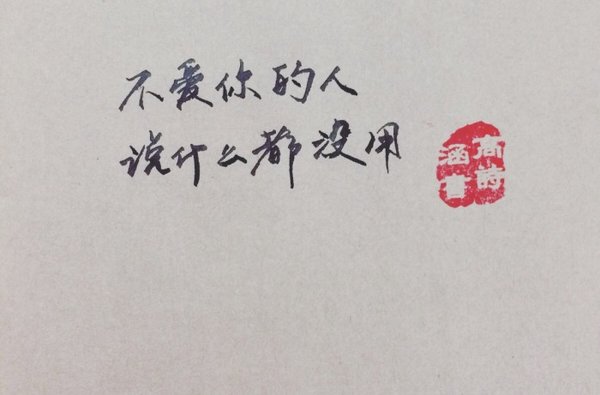 不爱你的人
说什么都没用
高诗
涵書